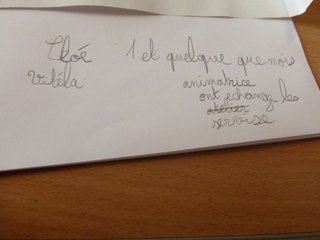 Cloé 1 et quelque que mois
Vitéla animatrice
ont echange les
atelier
service